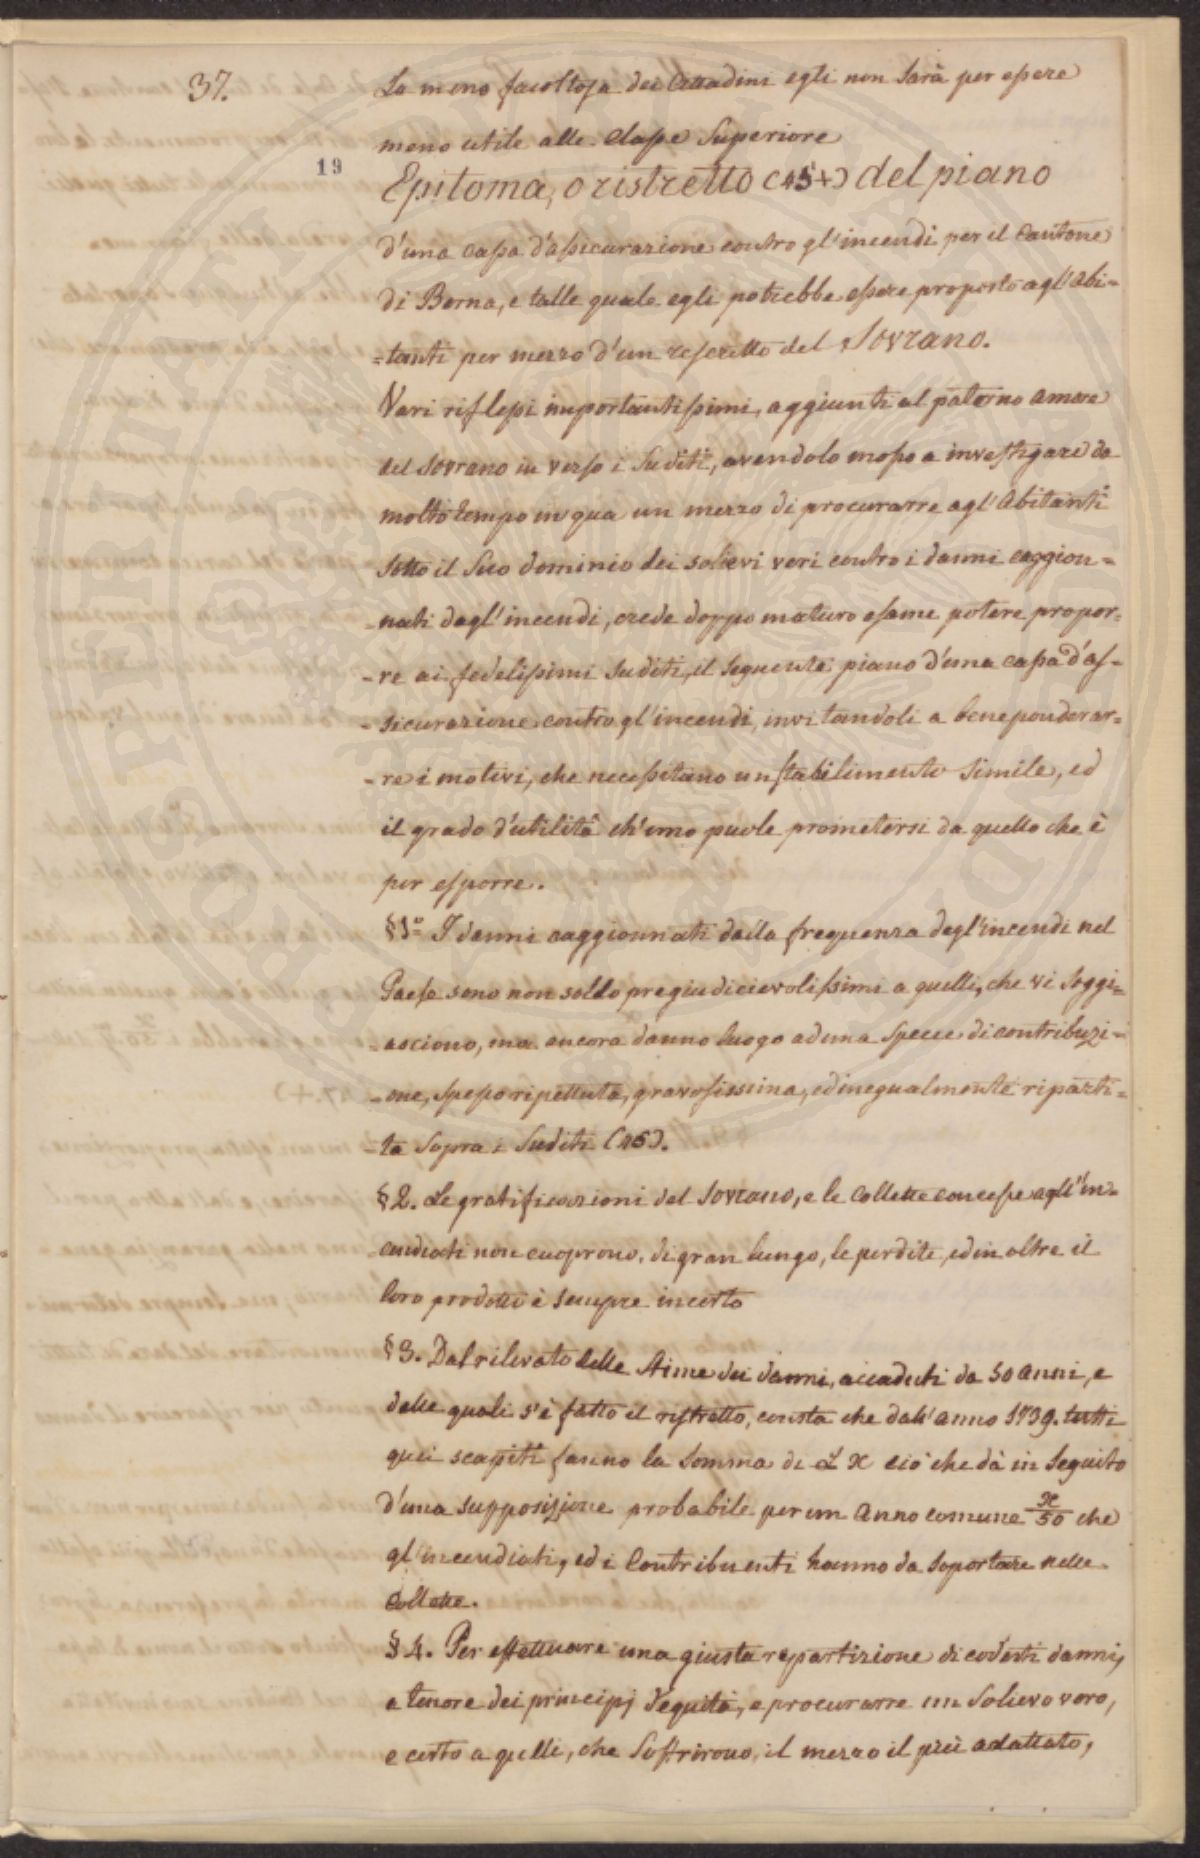 37.
La meno facoltosa dei Cittadini egli non sarà per essere
meno utile alle Classe Superiore
19
Epitoma, o ristretto (45+) del piano
d'una cassa d'assicurazione contro gl'incendi per il Cantone
di Berna, e talle quale egli potrebbe essere proposto agl'abi=
=tanti per mezzo d'un rescretto del Sovrano.
Vari riflessi importantissimi, aggiunti al paterno amore
del Sovrano in verso i Suditi, avendolo mosso a investigare da
molto tempo in qua un mezzo di procurarre agl'Abitanti
sotto il Suo dominio dei solievi veri contro i danni caggion=
=nati dagl'incendi, crede doppo maturo esame potere propor=
=re ai fedelissimi Suditi, il seguente piano d'una cassa d'as=
=sicurazione contro gl'incendi, invitandoli a bene ponderar=
=re i motivi, che necessitano un stabilimento simile, ed
il grado d'utilità ch'uno puole prometersi da quello che è
per esporre.
§ 1º I danni caggionnati dalla frequenza degl'incendi nel
Paese sono non soldo pregiudicievolissimi a quelli, che vi soggi=
=asciono, ma ancora danno luogo ad una specie di contribuzi=
=one, spesso ripettuta, gravosissima, ed inegualmente riparti=
=ta sopra i Suditi (46).
§ 2. Le gratificazioni del Sovrano, e le Collette concesse agl'in=
=cendiati non cuoprono, di gran lungo, le perdite, ed in oltre il
loro prodotto è sempre incerto
§ 3. Dal rilevato delle stime dei danni, accaduti da 50 anni, e
delle quali s'è fatto il ristretto, consta che dall'anno 1739. tutti
quei scapiti fanno la somma di £ X ciò che dà in seguito
d'una supposizione probabile per un Anno comune X/50 che
gl'incendiati, ed i Contribuenti hanno da soportare nelle
Collette.
§ 4. Per effettuare una giusta repartizione di codesti danni,
a tenore dei principj d'equità, e procurarre un solievo vero,
e certo a quelli, che soffrirono, il mezzo il più adattato,